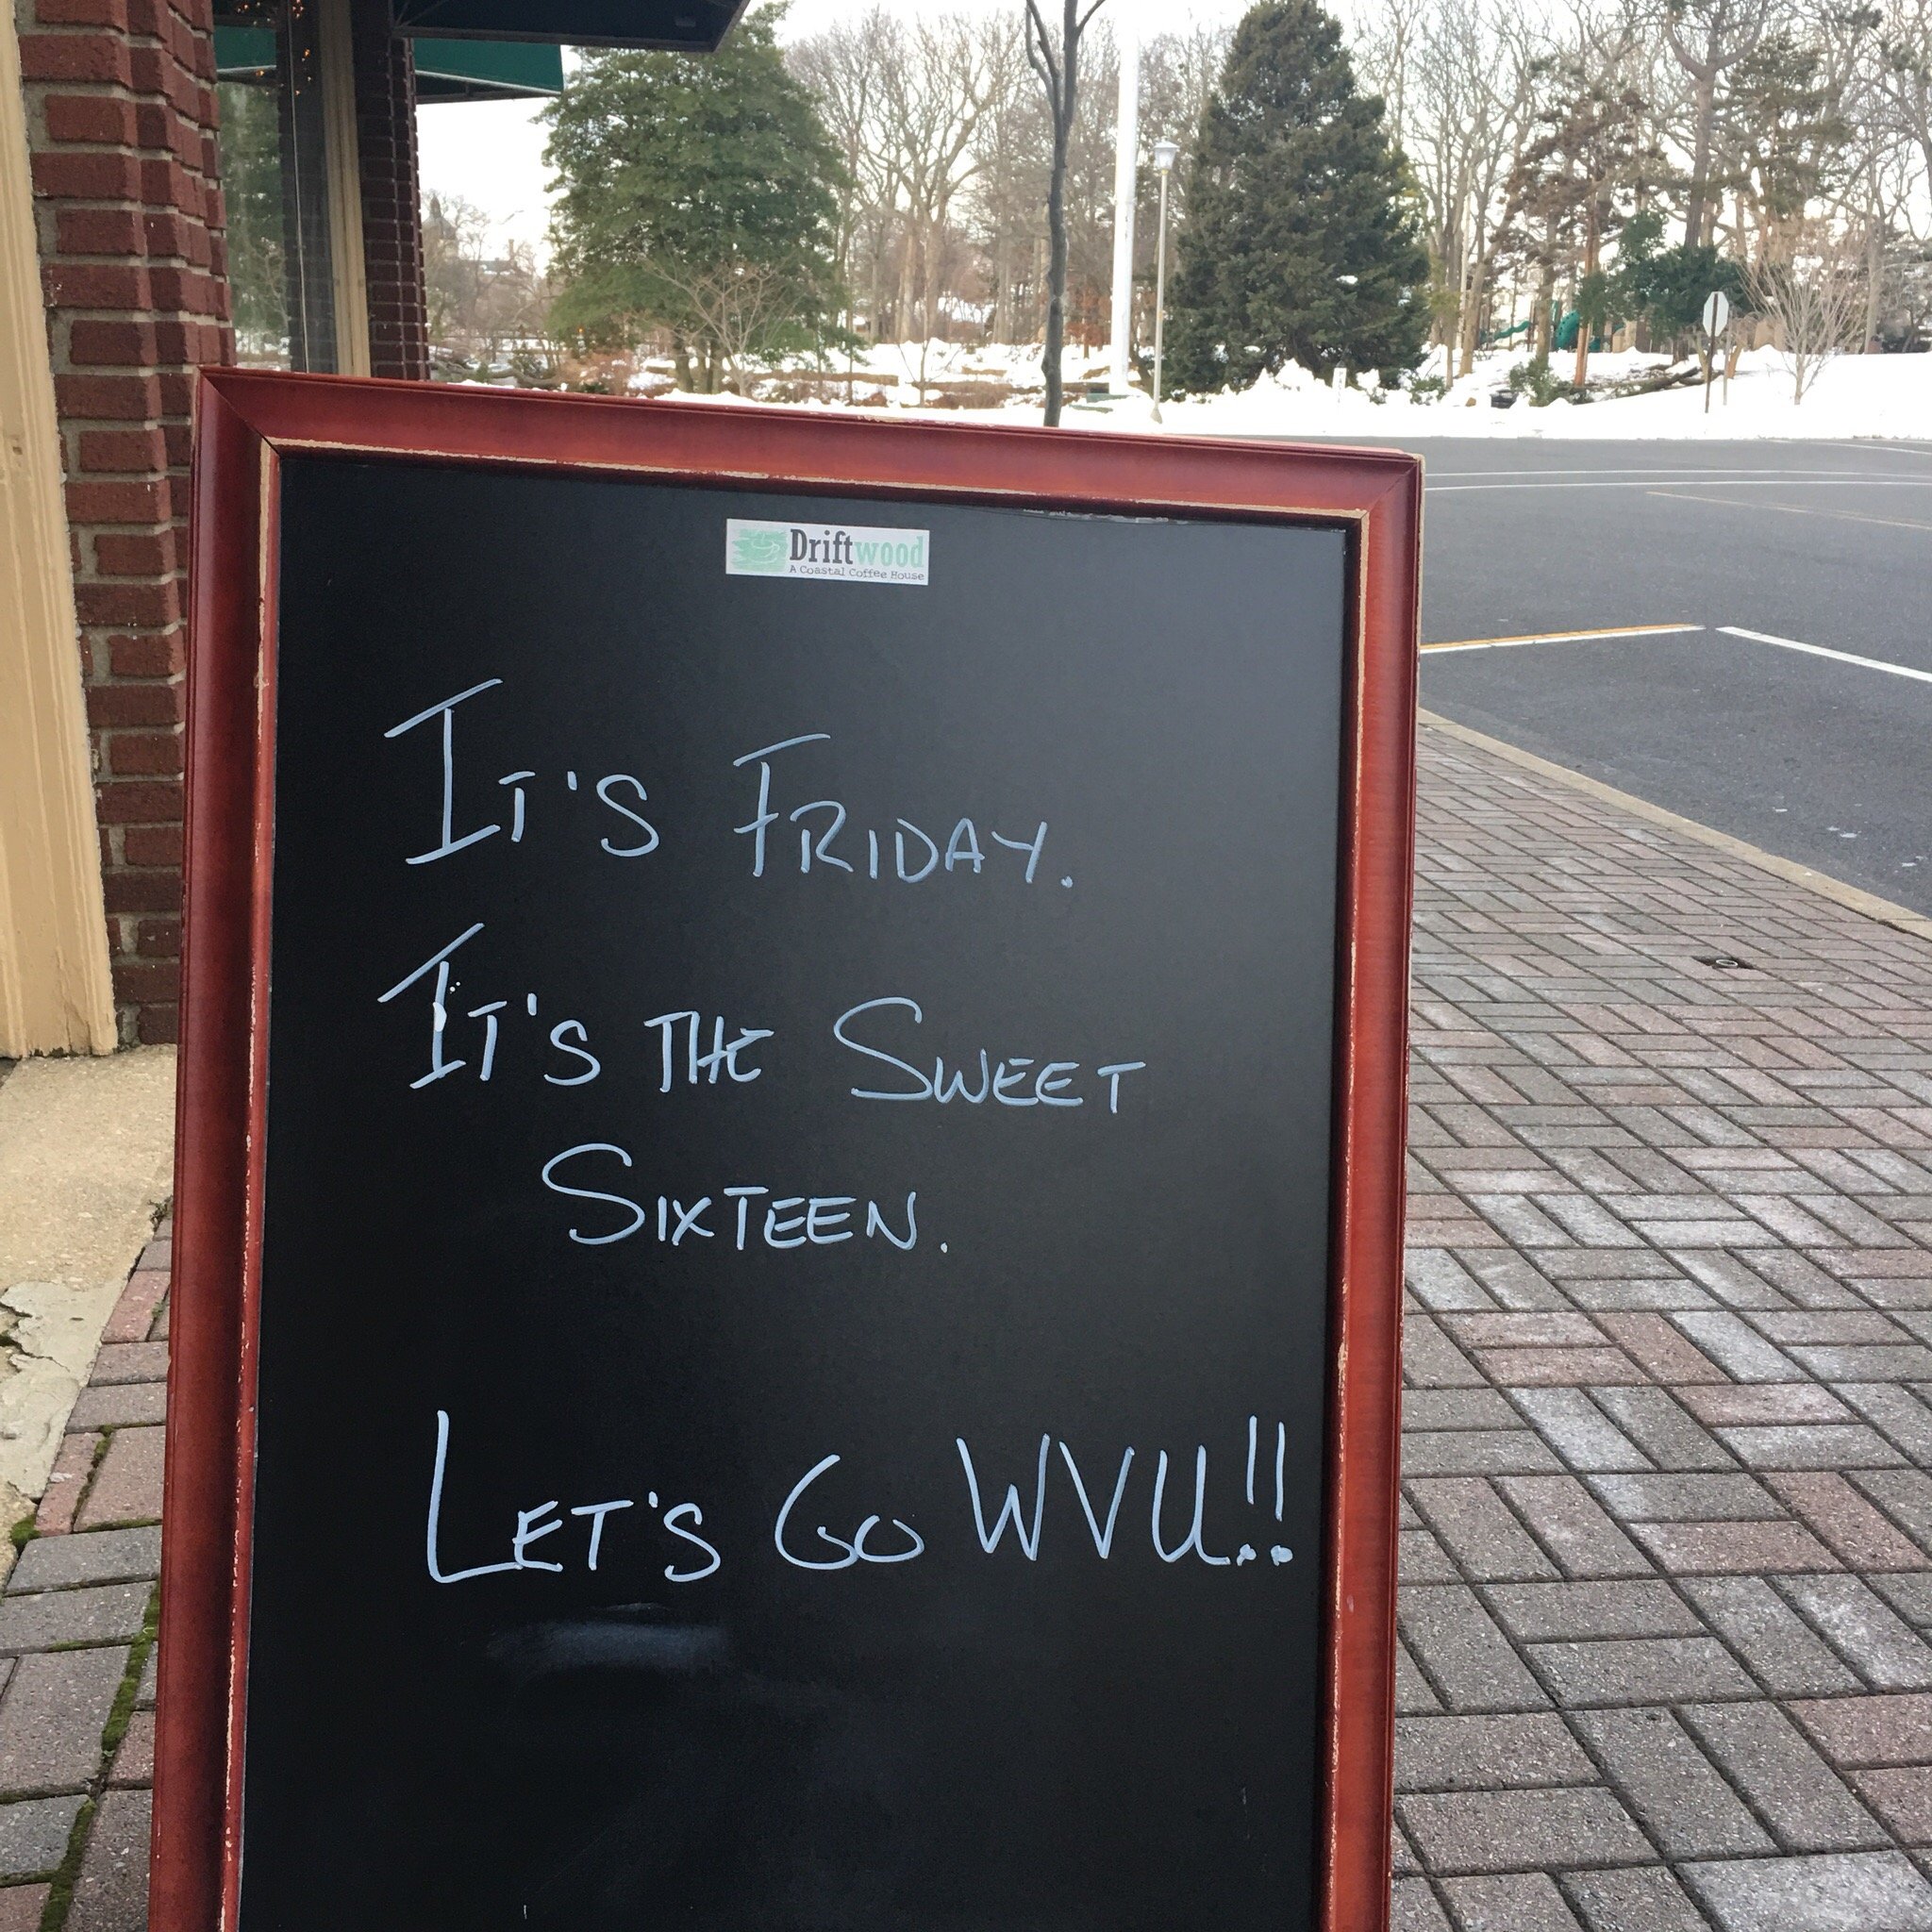 Driftwood
A Coastal Coffee House
IT'S FRIDAY.
IT'S THE SWEET
SIXTEEN.
LET'S GO WVU!!